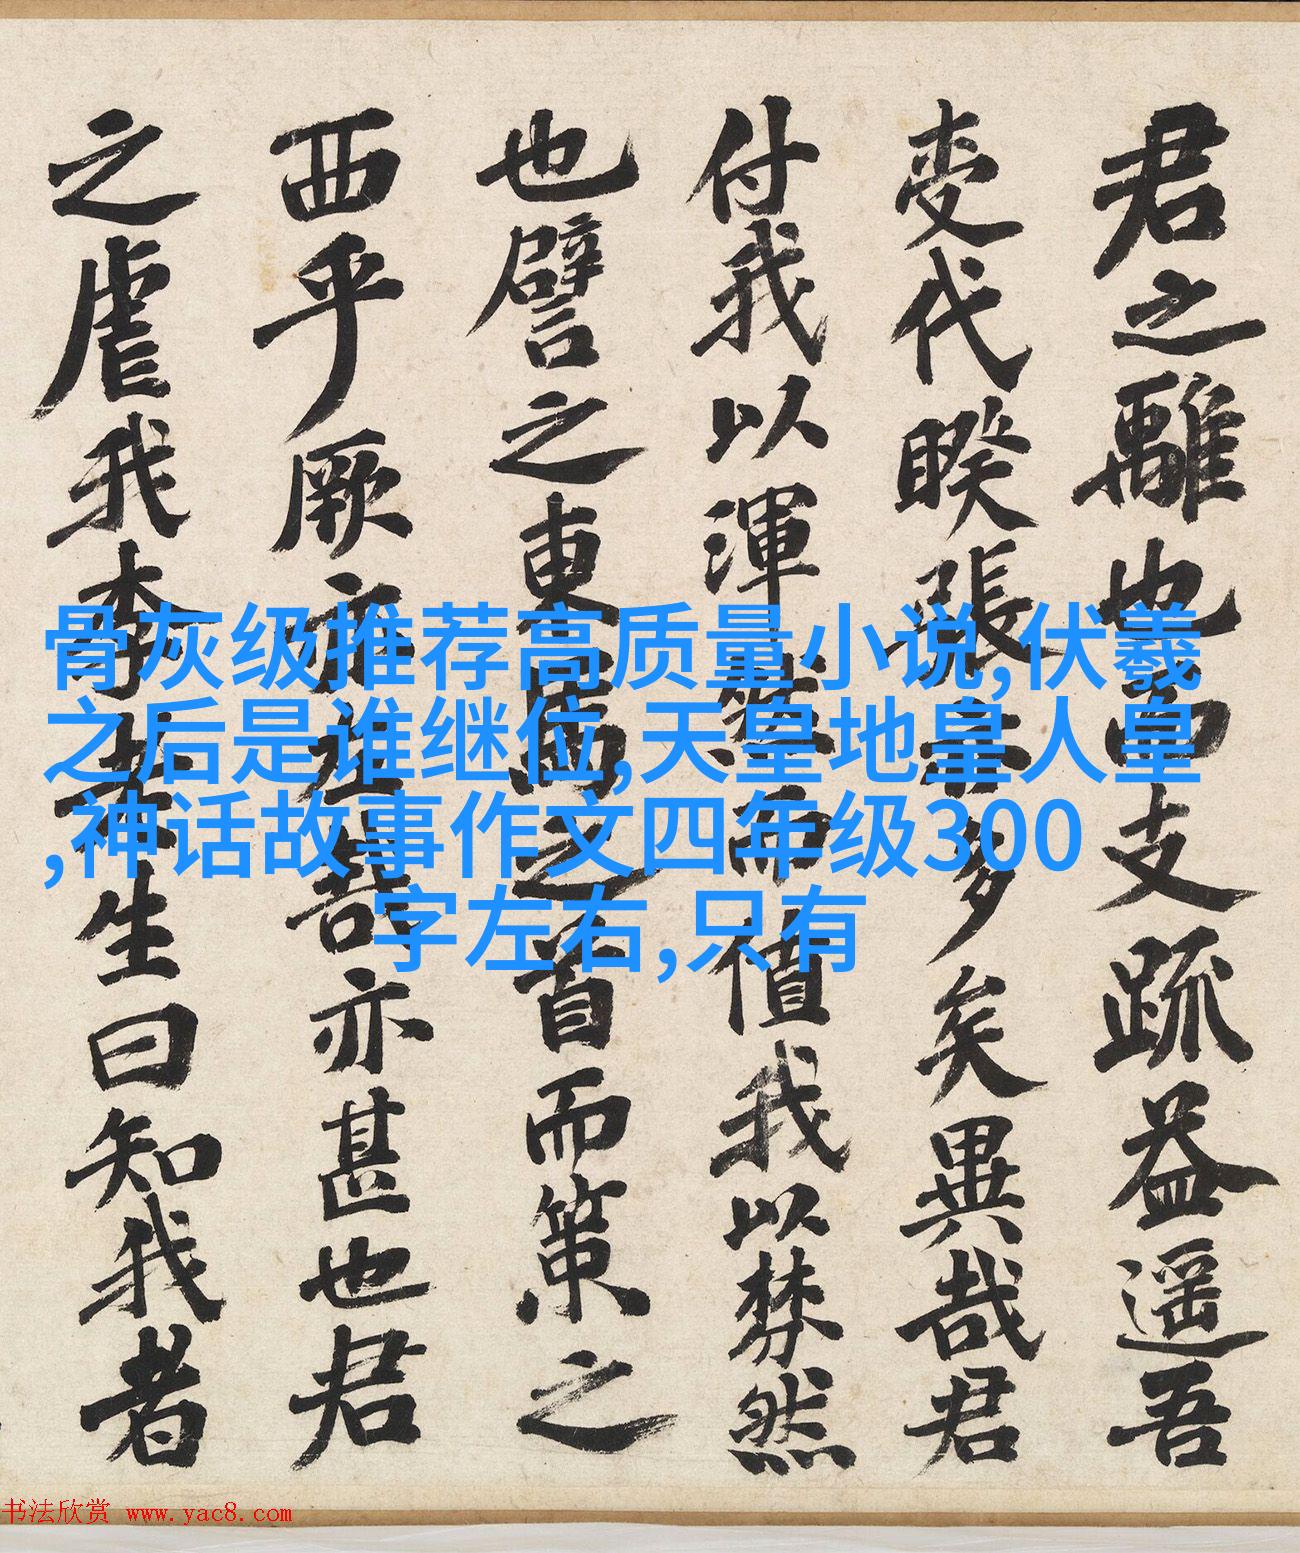 君之離也而支疏益遥吾
变代睽張亦多矣異哉君
付我以渾然而值我以棼然
也譬之東國之首而策之
西乎厥亦左哉亦甚也君
之虐我李先生曰知我者
骨灰级推荐高质量小说,伏羲
之后是谁继位,天皇地皇人皇
,神话故事作文四年级300
字左右,只有
书法欣赏 www.yac8.com